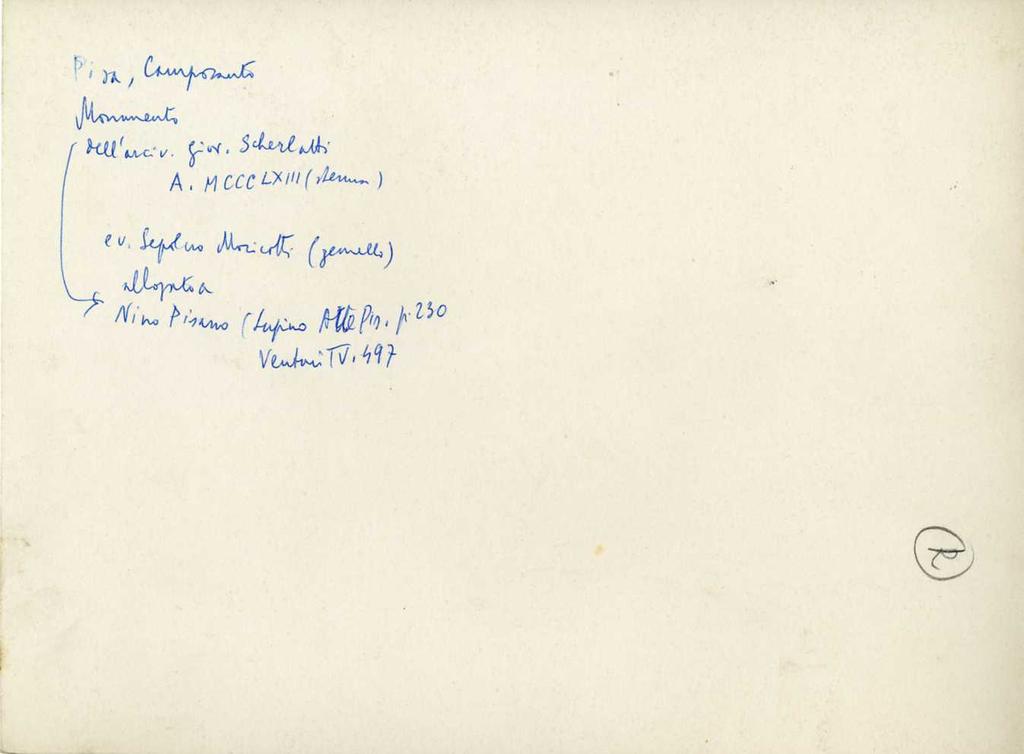 Pisa, Camposanto
Monumento
dell'arciv. Giov. Scherlatti
A. MCCCLXIII (stemma)
ev. Sepolcro Moricotti (gemello)
allogato a
Nino Pisano (Supino Arte Pis. p. 230
Venturi IV. 497
R